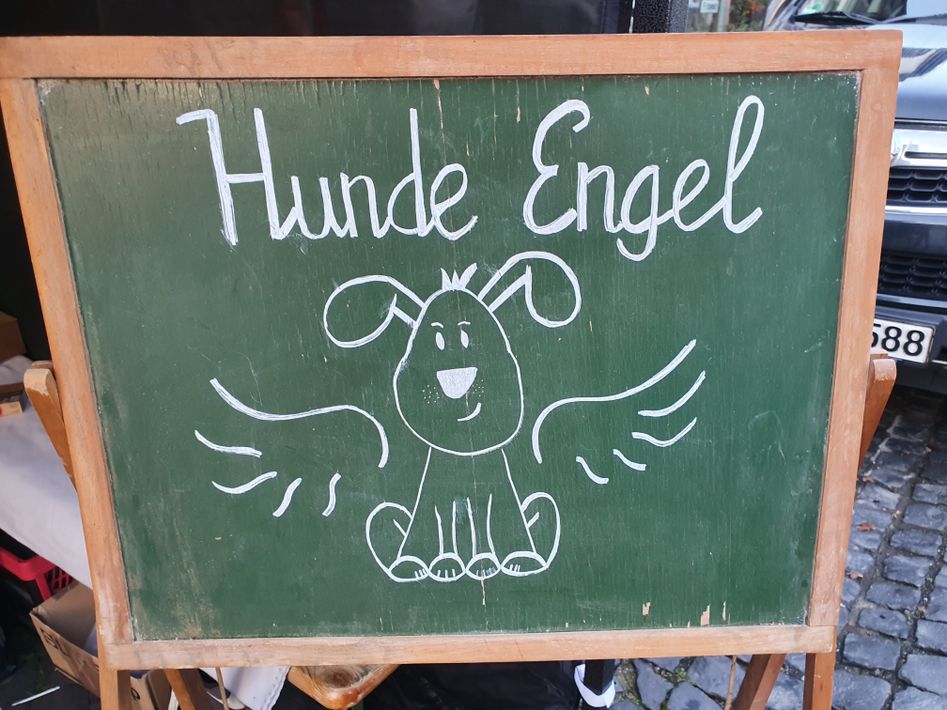 Hunde Engel
588